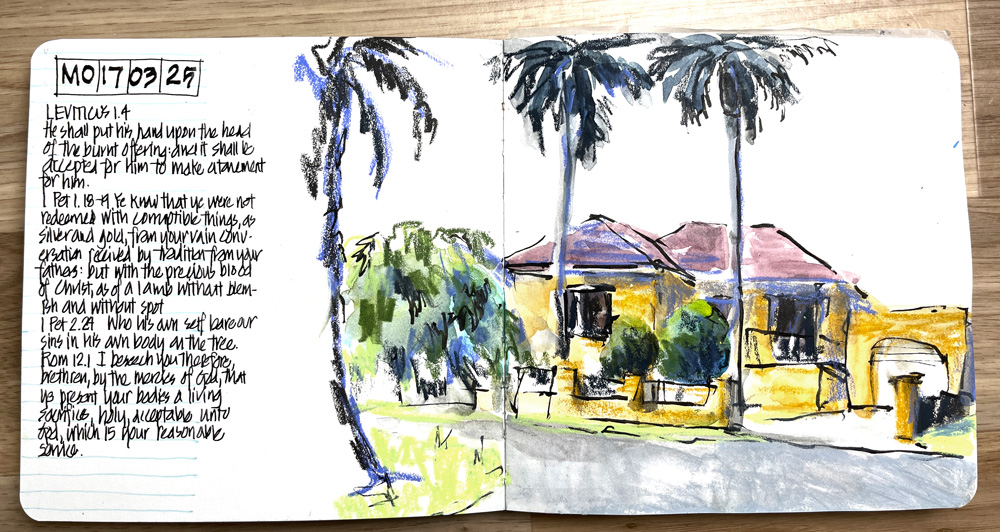 MO 17 03 25
LEVITICUS 1.4
He shall put his hand upon the head
of the burnt offering: and it shall be
accepted for him to make atonement
for him.
1 Pet 1.18-19 Ye know that ye were not
redeemed with corruptible things, as
silver and gold, from your vain conv-
ersation recived by tradition from your
fathers: but with the precious blood
of Christ, as of a lamb without blem-
ish and without spot
1 Pet 2.24 Who his own self bare our
sins in his own body on the tree.
Rom 12.1 I beseech you therefore,
brethren, by the mercies of God, that
ye present your bodies a living
sacrifice, holy, acceptable unto
God, which is your reasonable
service.